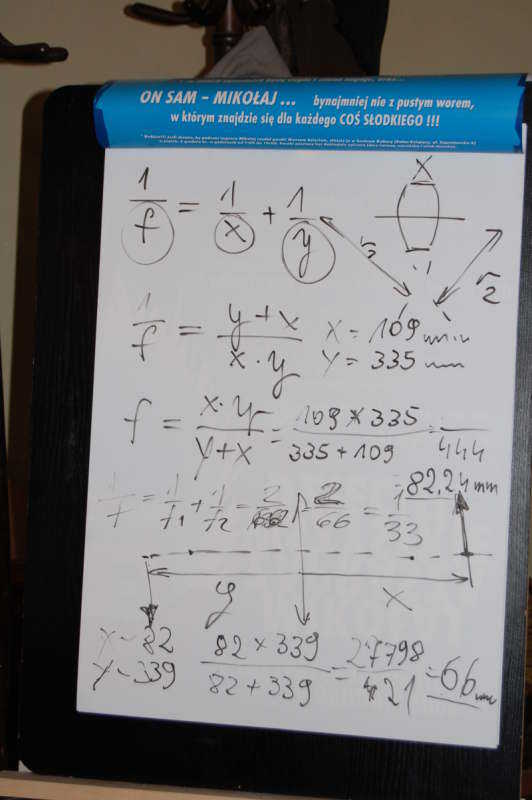 ON SAM – MIKOŁAJ ... bynajmniej nie z pustym worem,
w którym znajdzie się dla każdego COŚ SŁODKIEGO !!!
1/f = 1/x + 1/y
X
r2
1/f = (y + x)/(x · y)
X = 109 mm
Y = 335 mm
f = (x · y)/(y + x) = (109 * 335)/(335 + 109) = /444
= 82,24 mm
1/f = 1/f1 + 1/f2 = 2/66 = 1/33
y
x
x – 82
y – 339
(82 × 339)/(82 + 339) = 27798/421 = 66 mm